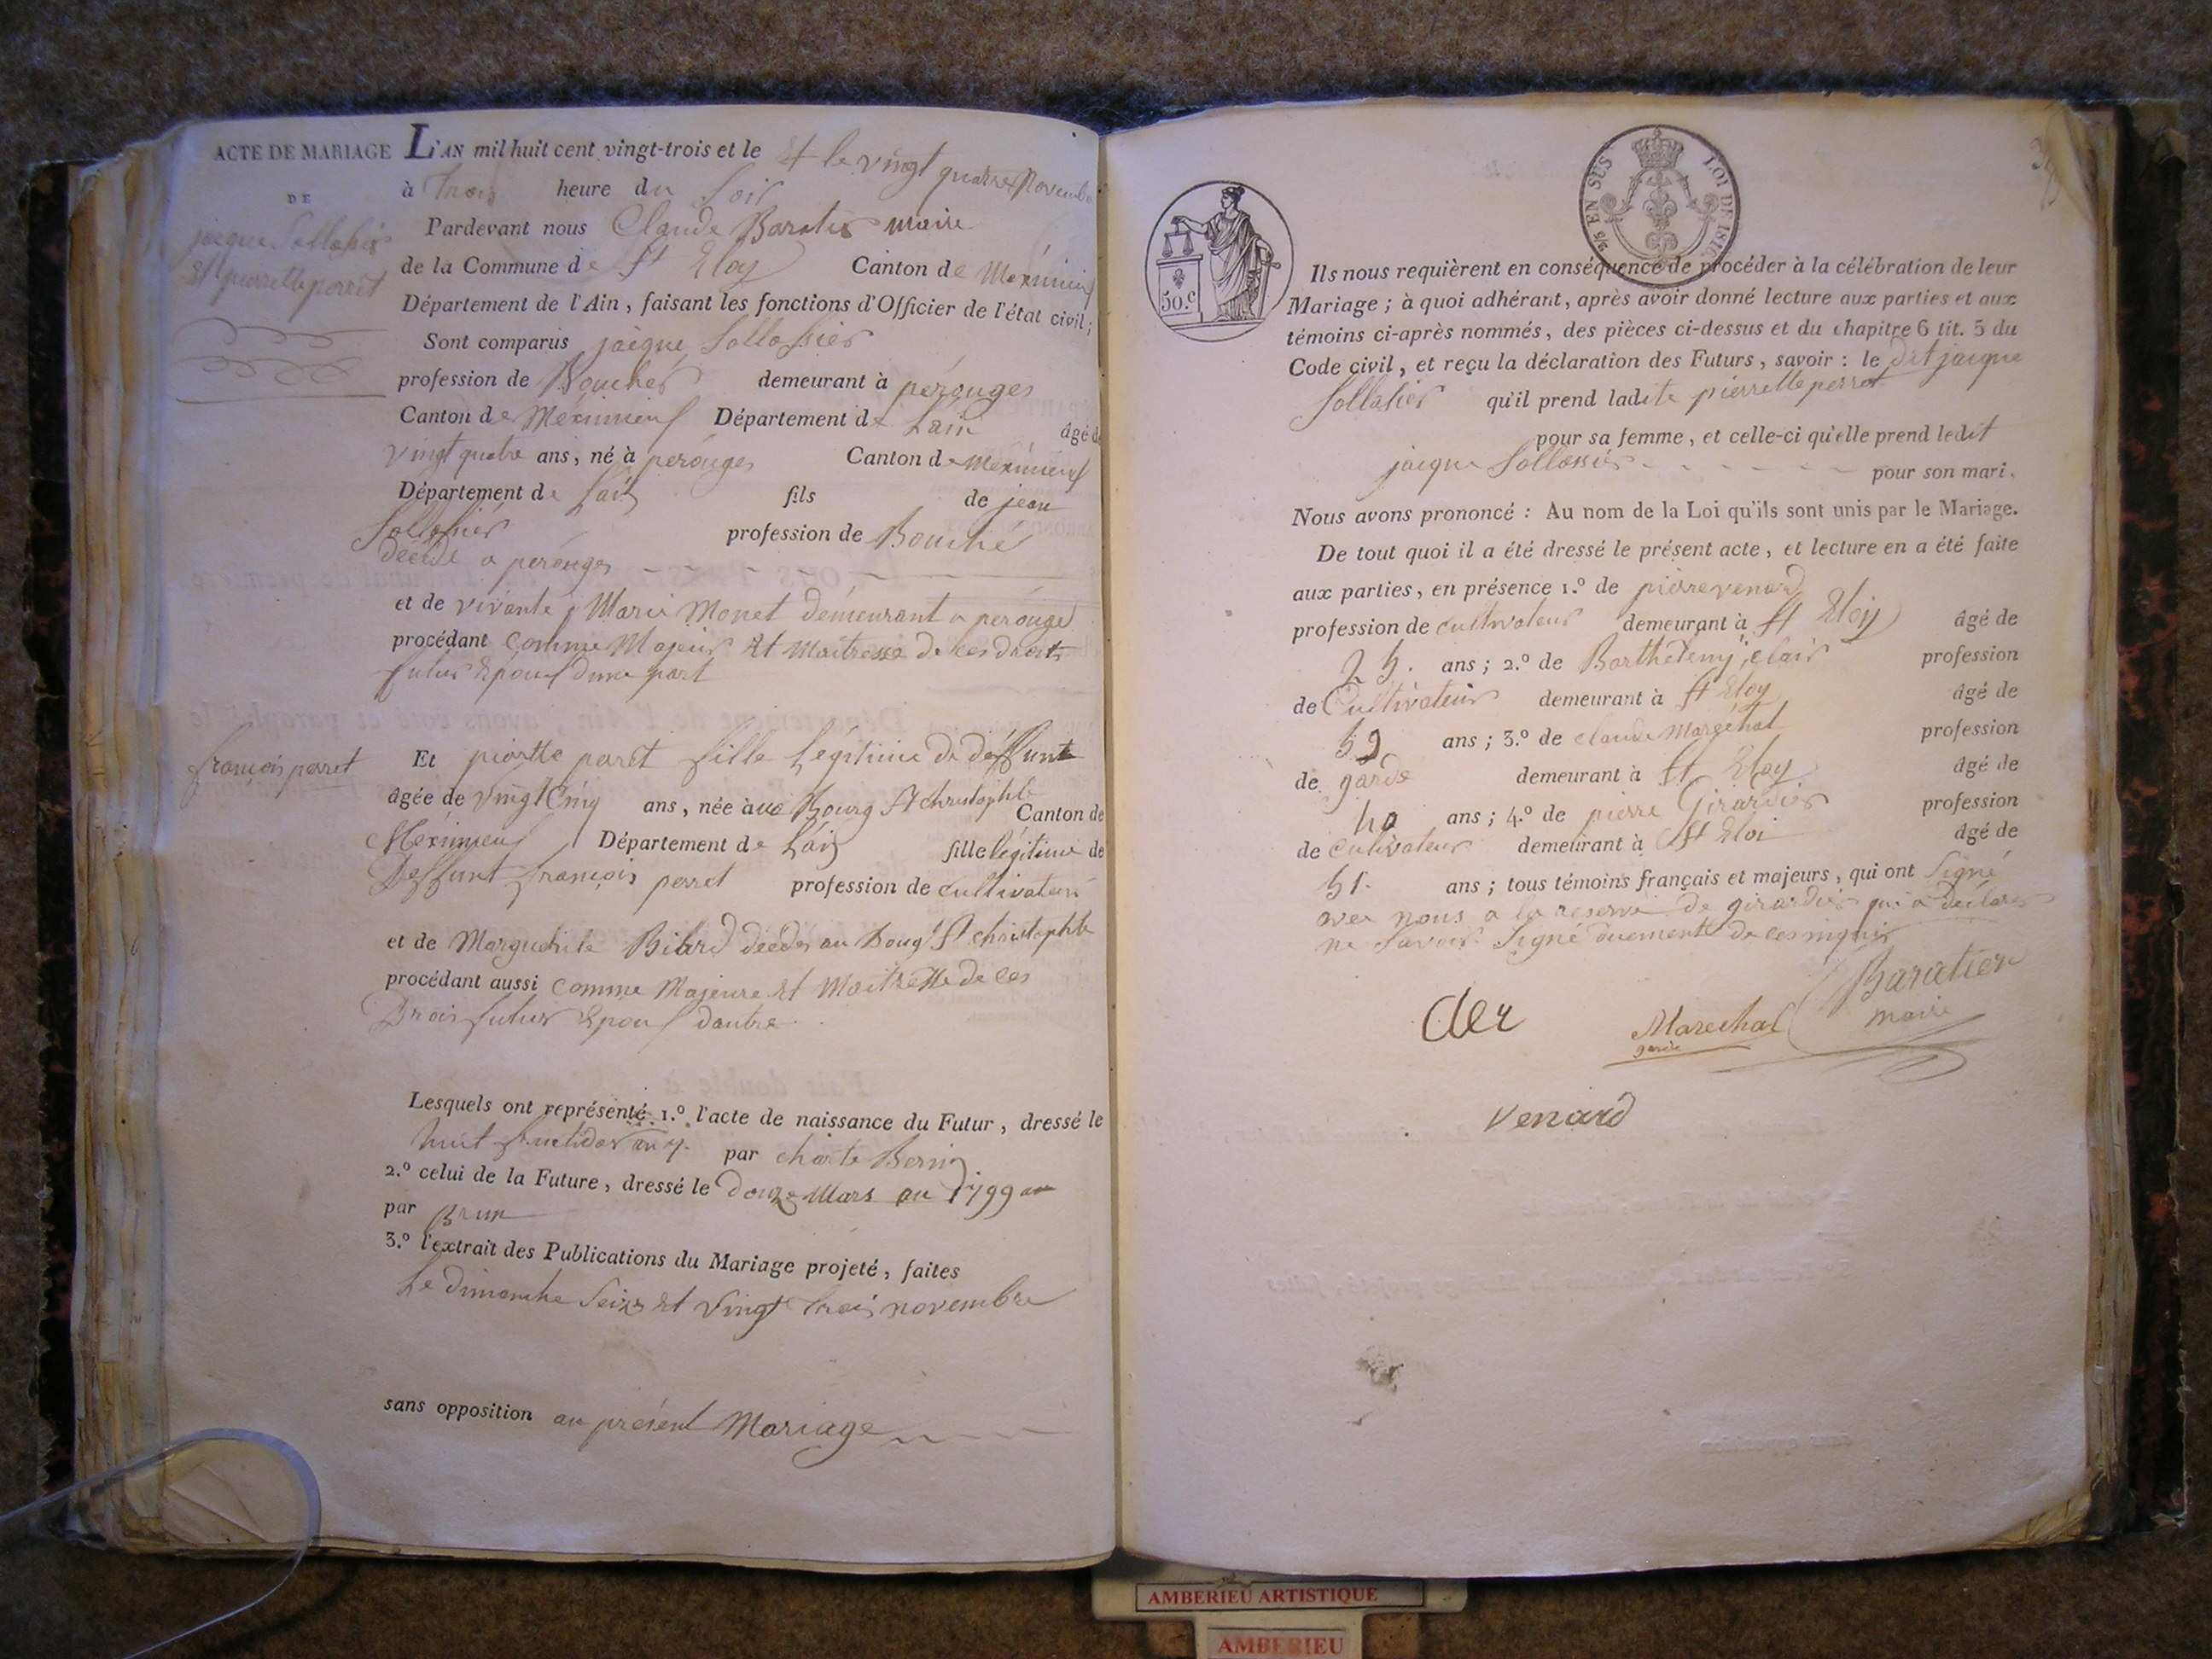 ACTE DE MARIAGE
DE
jacque Sollasier
Et pierrette perret
L'AN mil huit cent vingt-trois et le Et le vingt quatre Novembre
à Trois heure du Soir
Pardevant nous Claude Baratier maire
de la Commune de St Eloy Canton de Meximieux
Département de l'Ain, faisant les fonctions d'Officier de l'état civil;
Sont comparus jacque Sollassier
profession de Boucher demeurant à pérouges
Canton de Meximieux Département de Lain âgé de
vingt quatre ans, né à pérouges Canton de Meximieux
Département de Lain fils de jean
Sollasier profession de Bouché
décédé a pérouges
et de vivante Marie Monet demeurant a pérouge
procédant comme Majeur Et Maitresse de ces droits
futur Epoux dune part
françois perret
Et fille Légitime de deffunt
âgée de vingt Cinq ans, née à Bourg St christophle Canton de
Meximieux Département de Lain fille légitime de
Deffunt françois perret profession de cultivateur
et de Marguerite décédés au Bourg St christophle
procédant aussi comme Majeure Et Maitresse de ces
Droits futur Epoux dautre
Lesquels ont représenté 1.º l'acte de naissance du Futur, dressé le
huit fructidor an 7. par
2.º celui de la Future, dressé le douze Mars 1799
par Brun
3.º l'extrait des Publications du Mariage projeté, faites
Le dimanche Seize Et vingt trois novembre
sans opposition au présent Mariage
5/2 EN SUS LOI DE 1816
50.c
Ils nous requièrent en conséquence de procéder à la célébration de leur
Mariage; à quoi adhérant, après avoir donné lecture aux parties et aux
témoins ci-après nommés, des pièces ci-dessus et du chapitre 6 tit. 5 du
Code civil, et reçu la déclaration des Futurs, savoir: le dit jacque
Sollasier qu'il prend ladite pierrette perret
pour sa femme, et celle-ci qu'elle prend ledit
jacque Sollassier pour son mari.
Nous avons prononcé: Au nom de la Loi qu'ils sont unis par le Mariage.
De tout quoi il a été dressé le présent acte, et lecture en a été faite
aux parties, en présence 1.º de pierre venard
profession de cultivateur demeurant à St Eloy âgé de
ans; 2.º de Barthelemy clair profession
de Cultivateur demeurant à St Eloy âgé de
ans; 3.º de claude Maréchal profession
de garde demeurant à St Eloy âgé de
40 ans; 4.º de pierre Girardier profession
de cultivateur demeurant à St Eloi âgé de
51. ans; tous témoins français et majeurs, qui ont Signé
avec nous a la reserve de girardier qui a déclaré
ne savoir Signé duement de ces
Baratier
maire
Cler
Marechal
garde
venard
AMBERIEU ARTISTIQUE
AMBERIEU